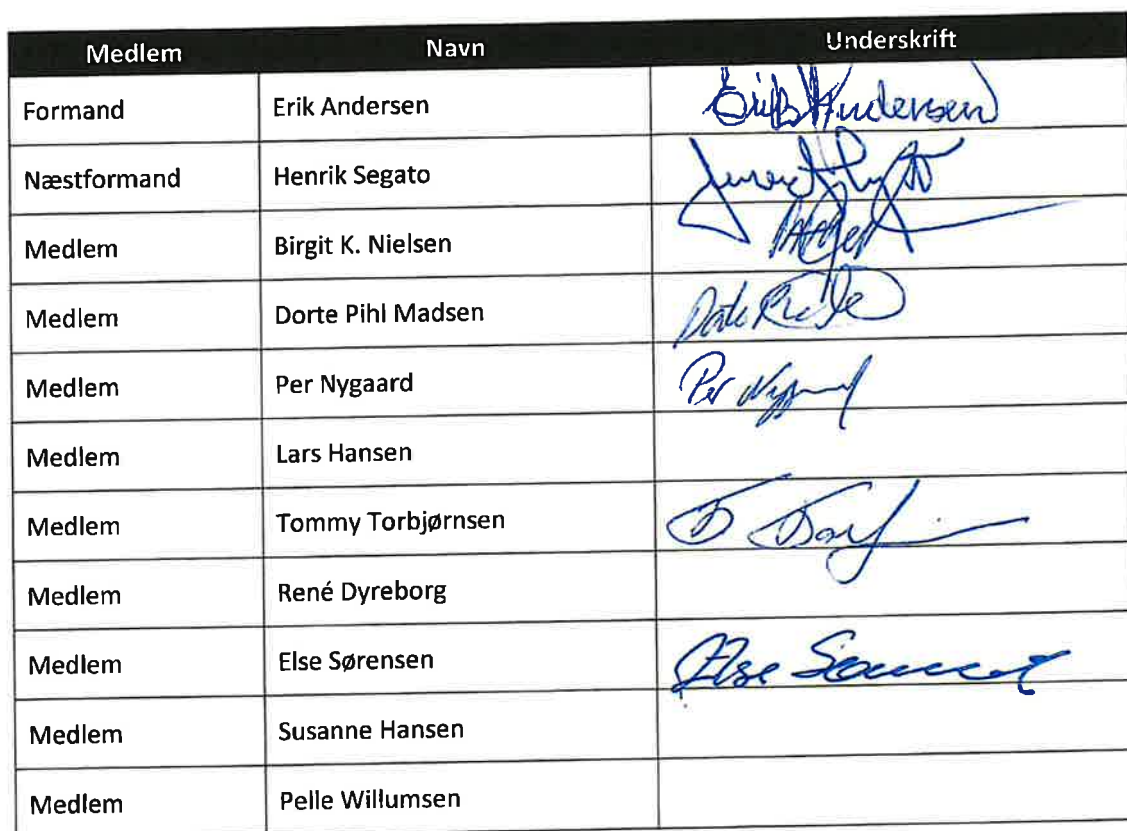 Medlem Navn Underskrift
Formand Erik Andersen Erik Andersen
Næstformand Henrik Segato
Medlem Birgit K. Nielsen
Medlem Dorte Pihl Madsen
Medlem Per Nygaard Per Nygaard
Medlem Lars Hansen
Medlem Tommy Torbjørnsen
Medlem René Dyreborg
Medlem Else Sørensen Else
Medlem Susanne Hansen
Medlem Pelle Willumsen